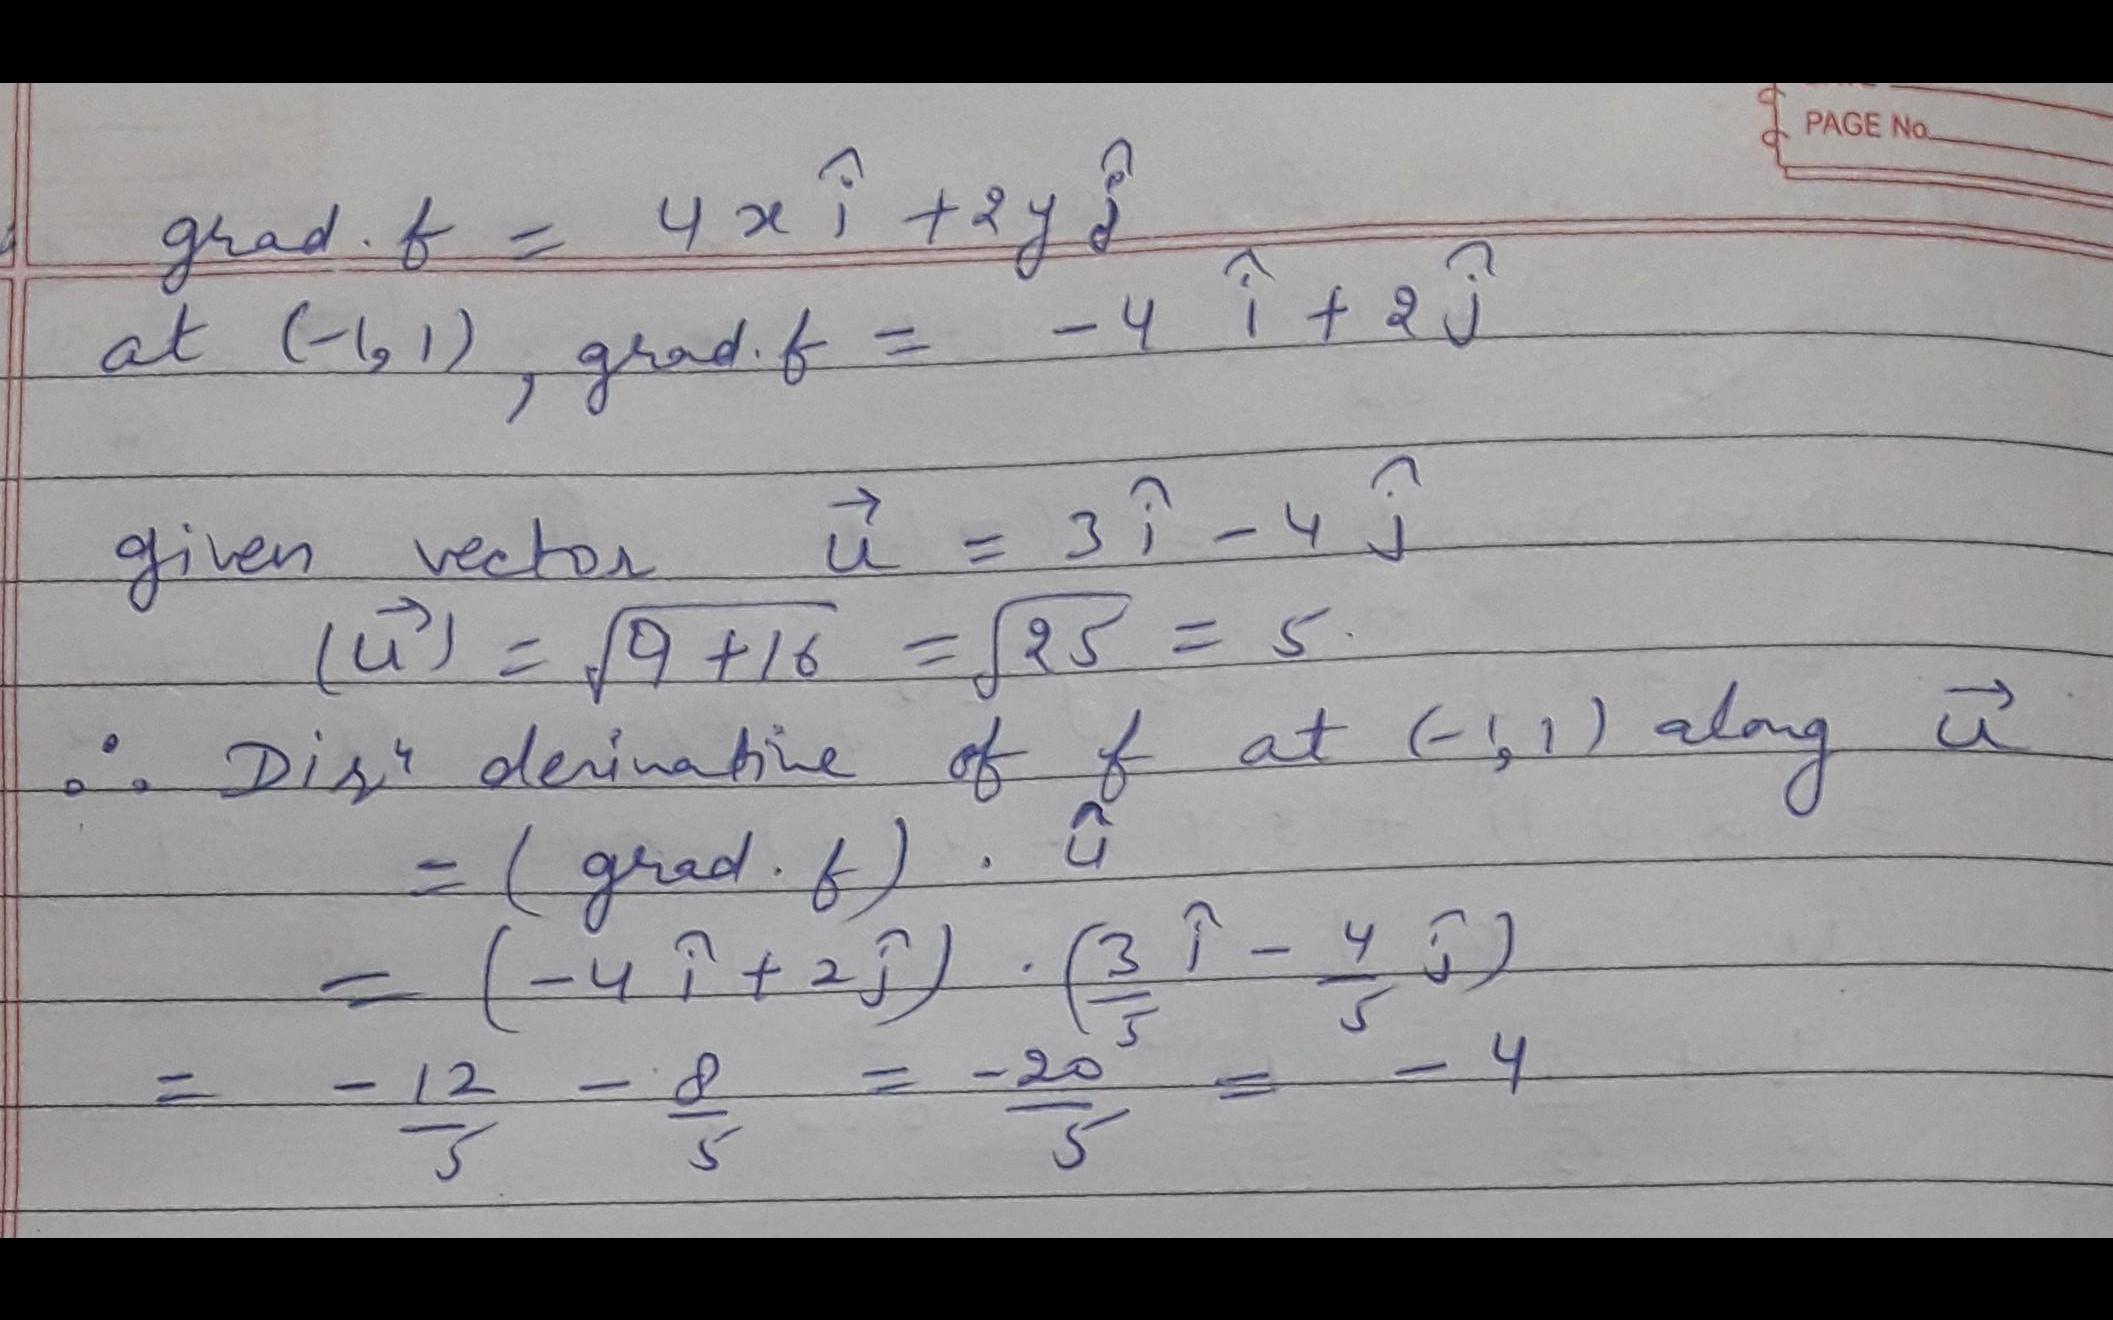 PAGE No.
grad. f = 4x î + 2y ĵ
at (-1, 1), grad. f = -4 î + 2 ĵ
given vector u⃗ = 3 î - 4 ĵ
|u⃗| = √9+16 = √25 = 5.
∴ Dirⁿ derivative of f at (-1, 1) along u⃗
= (grad. f) . û
= (-4 î + 2 ĵ) . (3/5 î - 4/5 ĵ)
= -12/5 - 8/5 = -20/5 = -4